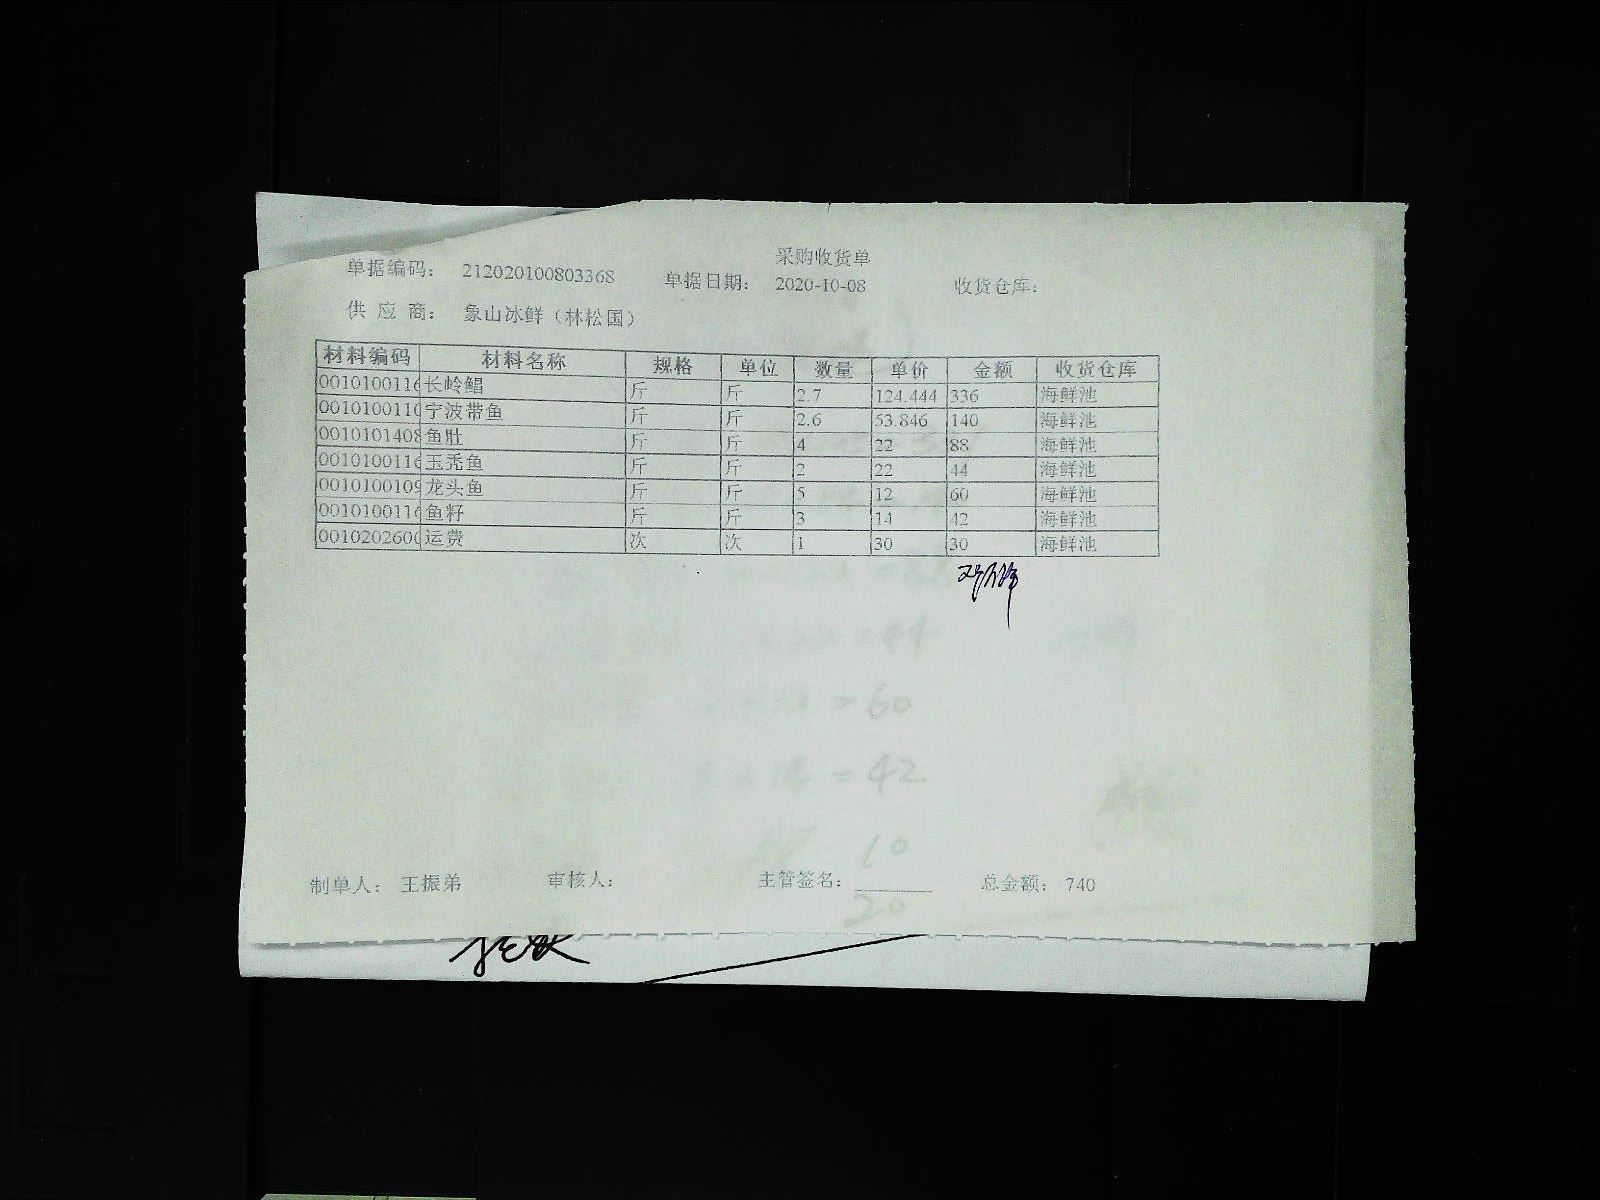 采购收货单
单据编码: 212020100803368 单据日期: 2020-10-08 收货仓库:
供 应 商: 象山冰鲜（林松国）
材料编码 材料名称 规格 单位 数量 单价 金额 收货仓库
0010100116 长岭鲳 斤 斤 2.7 124.444 336 海鲜池
001010011 宁波带鱼 斤 斤 2.6 53.846 140 海鲜池
0010101408 鱼肚 斤 斤 4 22 88 海鲜池
0010100116 玉秃鱼 斤 斤 2 22 44 海鲜池
0010100109 龙头鱼 斤 斤 5 12 60 海鲜池
0010100116 鱼籽 斤 斤 3 14 42 海鲜池
001020260 运费 次 次 1 30 30 海鲜池
= 44
= 60
= 42
10
制单人: 王振弟 审核人: 主管签名: 总金额: 740
20